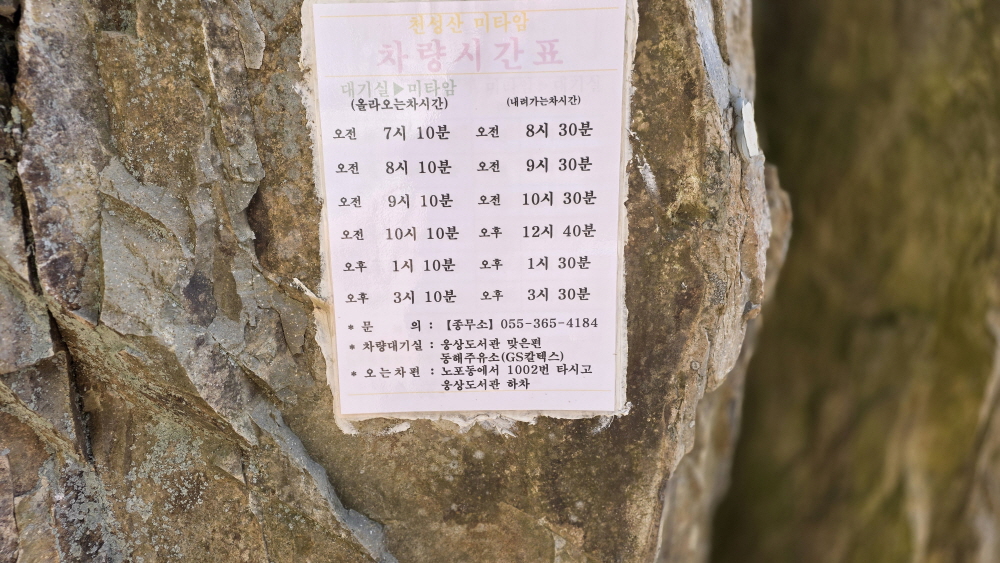 천성산 미타암
차량시간표
대기실▶미타암
(올라오는차시간) (내려가는차시간)
오전 7시 10분 오전 8시 30분
오전 8시 10분 오전 9시 30분
오전 9시 10분 오전 10시 30분
오전 10시 10분 오후 12시 40분
오후 1시 10분 오후 1시 30분
오후 3시 10분 오후 3시 30분
* 문 의 : 【종무소】 055-365-4184
* 차량대기실 : 웅상도서관 맞은편
동해주유소(GS칼텍스)
* 오는차편 : 노포동에서 1002번 타시고
웅상도서관 하차